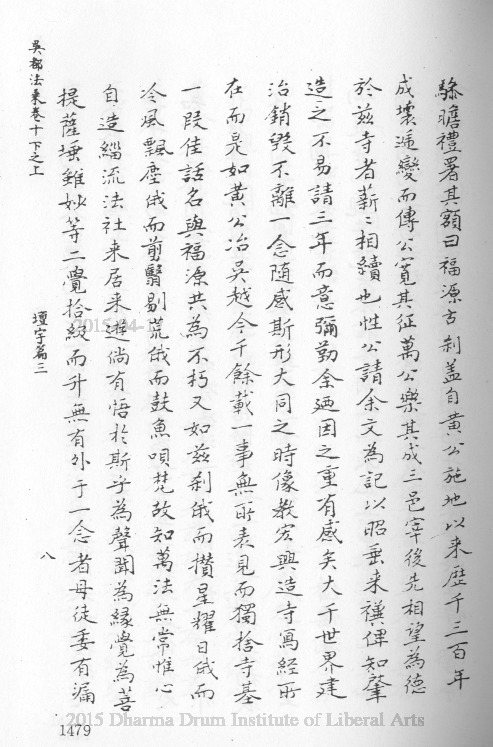 驂瞻禮署其額曰福源古剎蓋自黃公施地以来歷千三百年
成壞遞變而傳公寬其征萬公樂其成三邑宰後先相望為德
於兹寺者薪〻相續也性公請余文為記以昭垂来禩俾知肇
造之不易請三年而意彌勤余廼因之重有感矣大千世界建
治銷毀不離一念随感斯形大同之時像教宏興造寺寫經所
在而是如黃公冶吳越今千餘載一事無所表見而獨捨寺基
一段佳話名與福源共為不朽又如兹剎俄而攢星耀日俄而
冷風飄塵俄而剪翳剔荒俄而鼓魚唄梵故知萬法無常惟心
自造緇流法社来居来遊倘有悟於斯乎為聲聞為緣覺為菩
提薩埵雖妙等二覺拾級而升無有外于一念者毋徒委有漏
吳都法乘卷十下之上
壇宇篇三
八
1479
2015-04-1
2015 Dharma Drum Institute of Liberal Arts